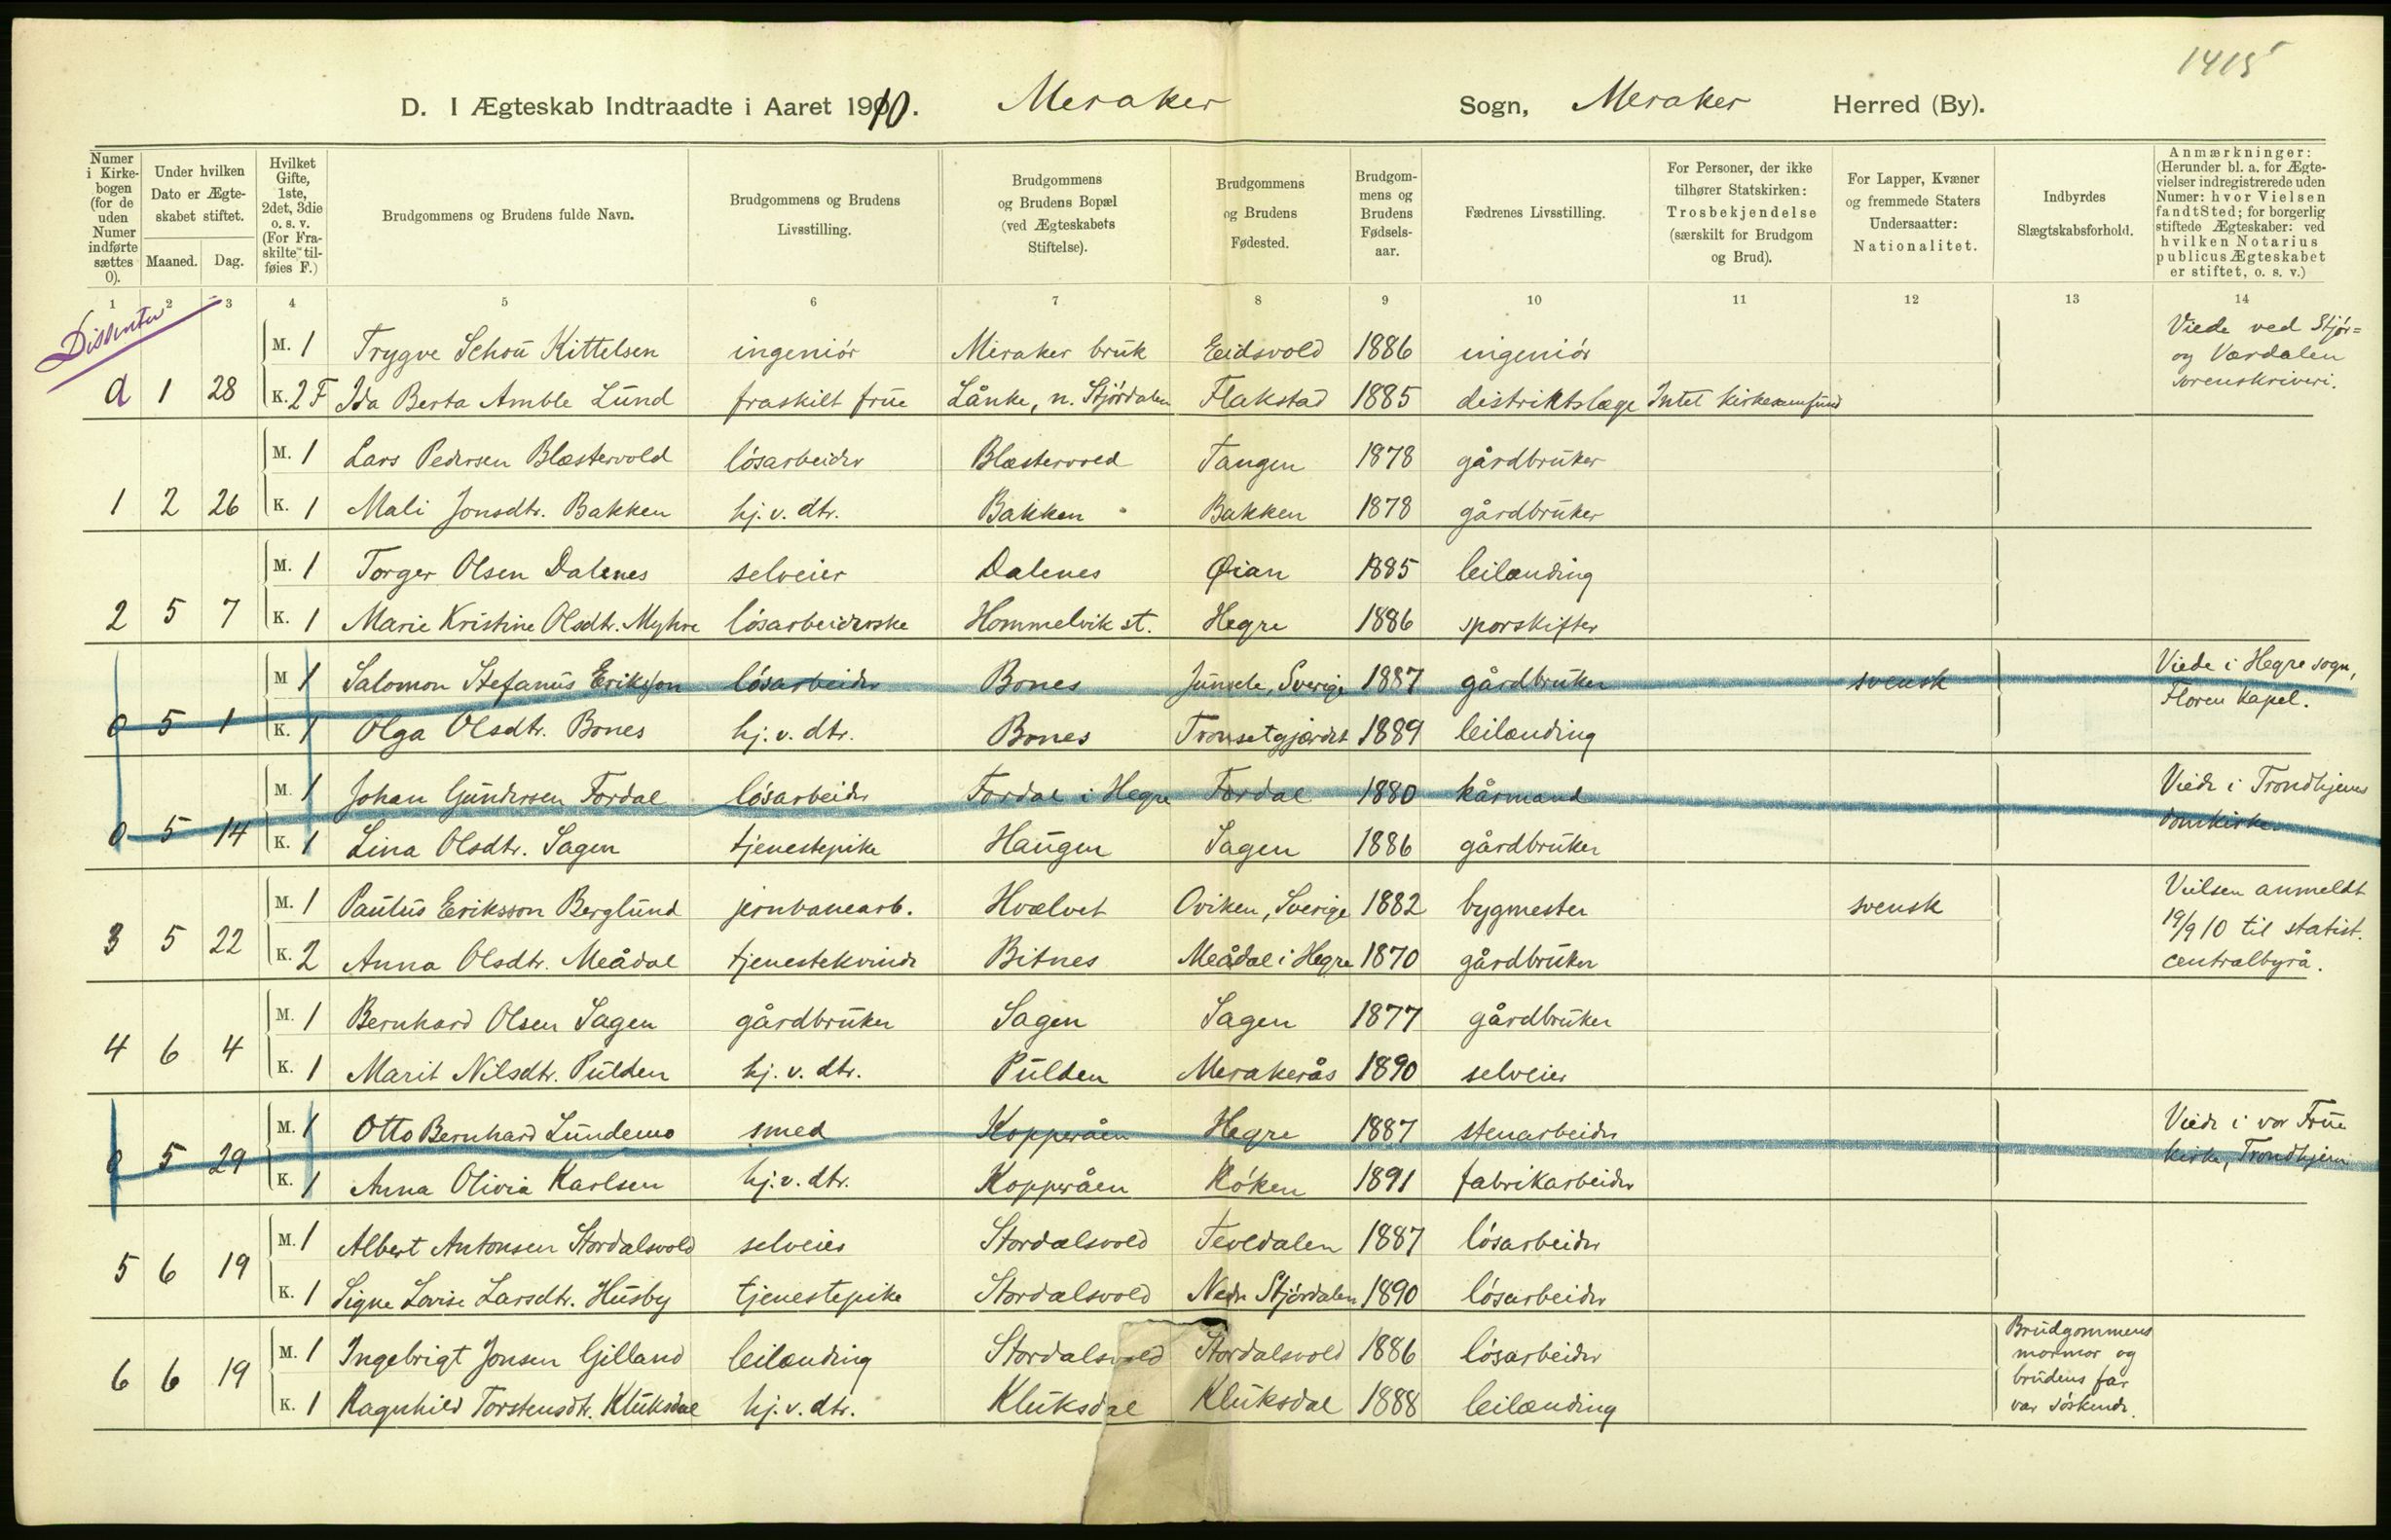 1415
D. I Ægteskab Indtraadte i Aaret 1910. Meraker Sogn, Meraker Herred (By).
Numer i Kirkebogen (for de uden Numer indførte sættes 0).
Under hvilken Dato er Ægteskabet stiftet.
Maaned. Dag.
Hvilket Gifte, 1ste, 2det, 3die o. s. v. (For Fraskilte tilføies F.)
Brudgommens og Brudens fulde Navn.
Brudgommens og Brudens Livsstilling.
Brudgommens og Brudens Bopæl (ved Ægteskabets Stiftelse).
Brudgommens og Brudens Fødested.
Brudgommens og Brudens Fødselsaar.
Fædrenes Livsstilling.
For Personer, der ikke tilhører Statskirken: Trosbekjendelse (særskilt for Brudgom og Brud).
For Lapper, Kvæner og fremmede Staters Undersaatter: Nationalitet.
Indbyrdes Slægtskabsforhold.
Anmærkninger: (Herunder bl. a. for Ægtevielser indregistrerede uden Numer: hvor Vielsen fandt Sted; for borgerlig stiftede Ægteskaber: ved hvilken Notarius publicus Ægteskabet er stiftet, o. s. v.)
1 2 3 4 5 6 7 8 9 10 11 12 13 14
Dissenter
M. 1 Trygve Schou Kittelsen ingeniør Meraker bruk Eidsvold 1886 ingeniør Viede ved Stjør= og Værdalen sorenskriveri.
a 1 28 K. 2 F Ida Berta Amble Lund fraskilt frue Lånke, n. Stjørdalen Flakstad 1885 distriktslæge Intet kirkesamfund
M. 1 Lars Pedersen Blæstervold løsarbeider Blæstervold Tangen 1878 gårdbruker
1 2 26 K. 1 Mali Jonsdtr. Bakken hj. v. dtr. Bakken Bakken 1878 gårdbruker
M. 1 Torger Olsen Dalenes selveier Dalenes Øian 1885 leilænding
2 5 7 K. 1 Marie Kristine Olsdtr. Myhre løsarbeiderske Hommelvik st. Hegre 1886 sporskifter
M 1 Salomon Stefanus Eriksson løsarbeider Bones Junsele, Sverige 1887 gårdbruker svensk Viede i Hegre sogn, Floren kapel.
0 5 1 K. 1 Olga Olsdtr. Bones hj. v. dtr. Bones Tronsetgjærdet 1889 leilænding
M. 1 Johan Gundersen Fordal løsarbeider Fordal i Hegre Fordal 1880 kårmand Viede i Trondhjems domkirke.
0 5 14 K. 1 Lina Olsdtr. Sagen tjenestepike Haugen Sagen 1886 gårdbruker
M. 1 Paulus Eriksson Berglund jernbanearb. Hvælvet Oviken, Sverige 1882 bygmester svensk Vielsen anmeldt 19/9 10 til statist. centralbyrå.
3 5 22 K. 2 Anna Olsdtr. Meådal tjenestekvinde Bitnes Meådal i Hegre 1870 gårdbruker
M. 1 Bernhard Olsen Sagen gårdbruker Sagen Sagen 1877 gårdbruker
4 6 4 K. 1 Marit Nilsdtr. Pulden hj. v. dtr. Pulden Merakerås 1890 selveier
M. 1 Otto Bernhard Lundemo smed Kopperåen Hegre 1887 stenarbeider Viede i vor Frue kirke, Trondhjem
0 5 29 K. 1 Anna Olivia Karlsen hj. v. dtr. Kopperåen Røken 1891 fabrikarbeider
M. 1 Albert Antonsen Stordalsvold selveier Stordalsvold Tevldalen 1887 løsarbeider
5 6 19 K. 1 Signe Lovise Larsdtr. Husby tjenestepike Stordalsvold Nedre Stjørdalen 1890 løsarbeider
M. 1 Ingebrigt Jonsen Gilland leilænding Stordalsvold Stordalsvold 1886 løsarbeider Brudgommens mormor og brudens far var søskende.
6 6 19 K. 1 Ragnhild Torstensdtr. Kluksdal hj. v. dtr. Kluksdal Kluksdal 1888 leilænding